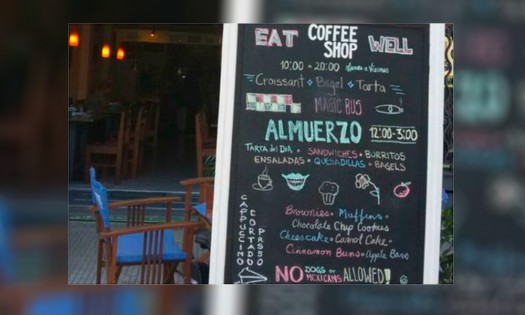 EAT COFFEE SHOP WELL
10:00 - 20:00 Lunes a Viernes
Croissant Bagel Tarta
MAGIC BUS
ALMUERZO 12:00-3:00
TARTA del DIA • SANDWICHES • BURRITOS
ENSALADAS • QUESADILLAS • BAGELS
CAPPUCCINO
CORTADO
Brownies • Muffins •
Chocolate Chip Cookies
Cheesecake • Carrot Cake •
Cinnamon Buns • Apple Bars
NO DOGS or MEXICANS ALLOWED!